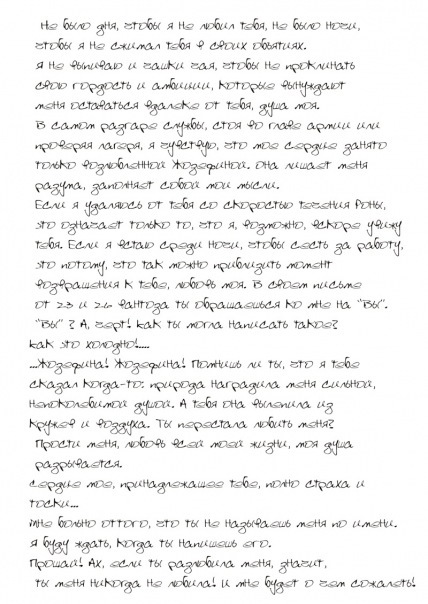 Не было дня, чтобы я не любил тебя, не было ночи,
чтобы я не сжимал тебя в своих объятиях.
Я не выпиваю и чашки чая, чтобы не проклинать
свою гордость и амбиции, которые вынуждают
меня оставаться вдалеке от тебя, душа моя.
В самом разгаре службы, стоя во главе армии или
проверяя лагеря, я чувствую, что мое сердце занято
только возлюбленной Жозефиной. Она лишает меня
разума, заполняет собой мои мысли.
Если я удаляюсь от тебя со скоростью течения Роны,
это означает только то, что я, возможно, вскоре увижу
тебя. Если я встаю среди ночи, чтобы сесть за работу,
это потому, что так можно приблизить момент
возвращения к тебе, любовь моя. В своем письме
от 23 и 26 вантоза ты обращаешься ко мне на "Вы".
"Вы" ? А, черт! Как ты могла написать такое?
Как это холодно!....
...Жозефина! Жозефина! Помнишь ли ты, что я тебе
сказал когда-то: природа наградила меня сильной,
непоколебимой душой. А тебя она вылепила из
кружев и воздуха. Ты перестала любить меня?
Прости меня, любовь всей моей жизни, моя душа
разрывается.
Сердце мое, принадлежащее тебе, полно страха и
тоски...
Мне больно оттого, что ты не называешь меня по имени.
Я буду ждать, когда ты напишешь его.
Прощай! Ах, если ты разлюбила меня, значит,
ты меня никогда не любила! И мне будет о чем сожалеть!